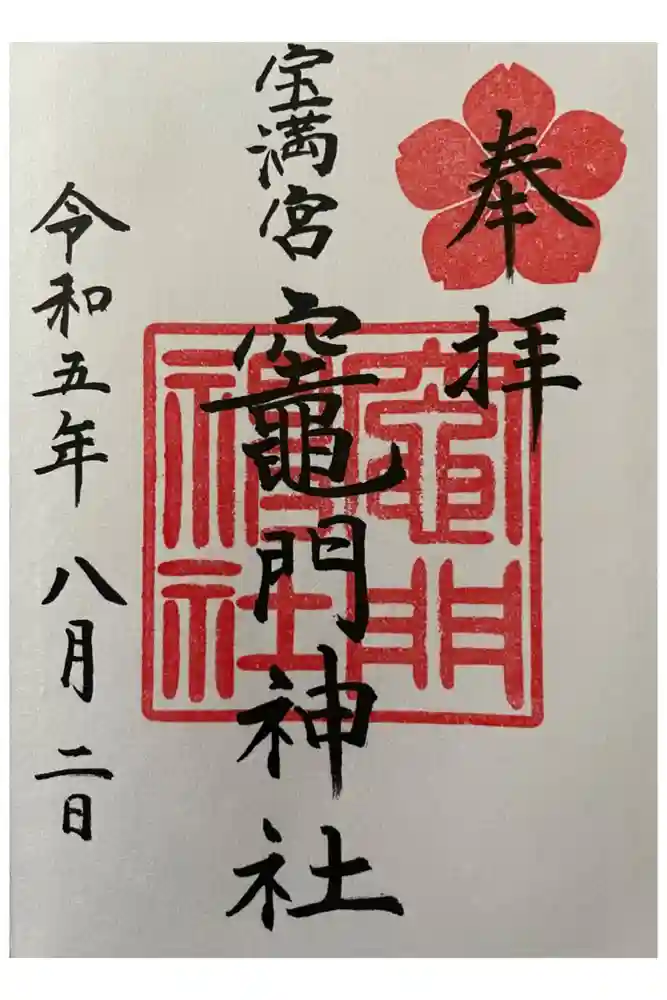 奉拝
宝満宮
竈門神社
竈門神社
令和五年 八月 二日